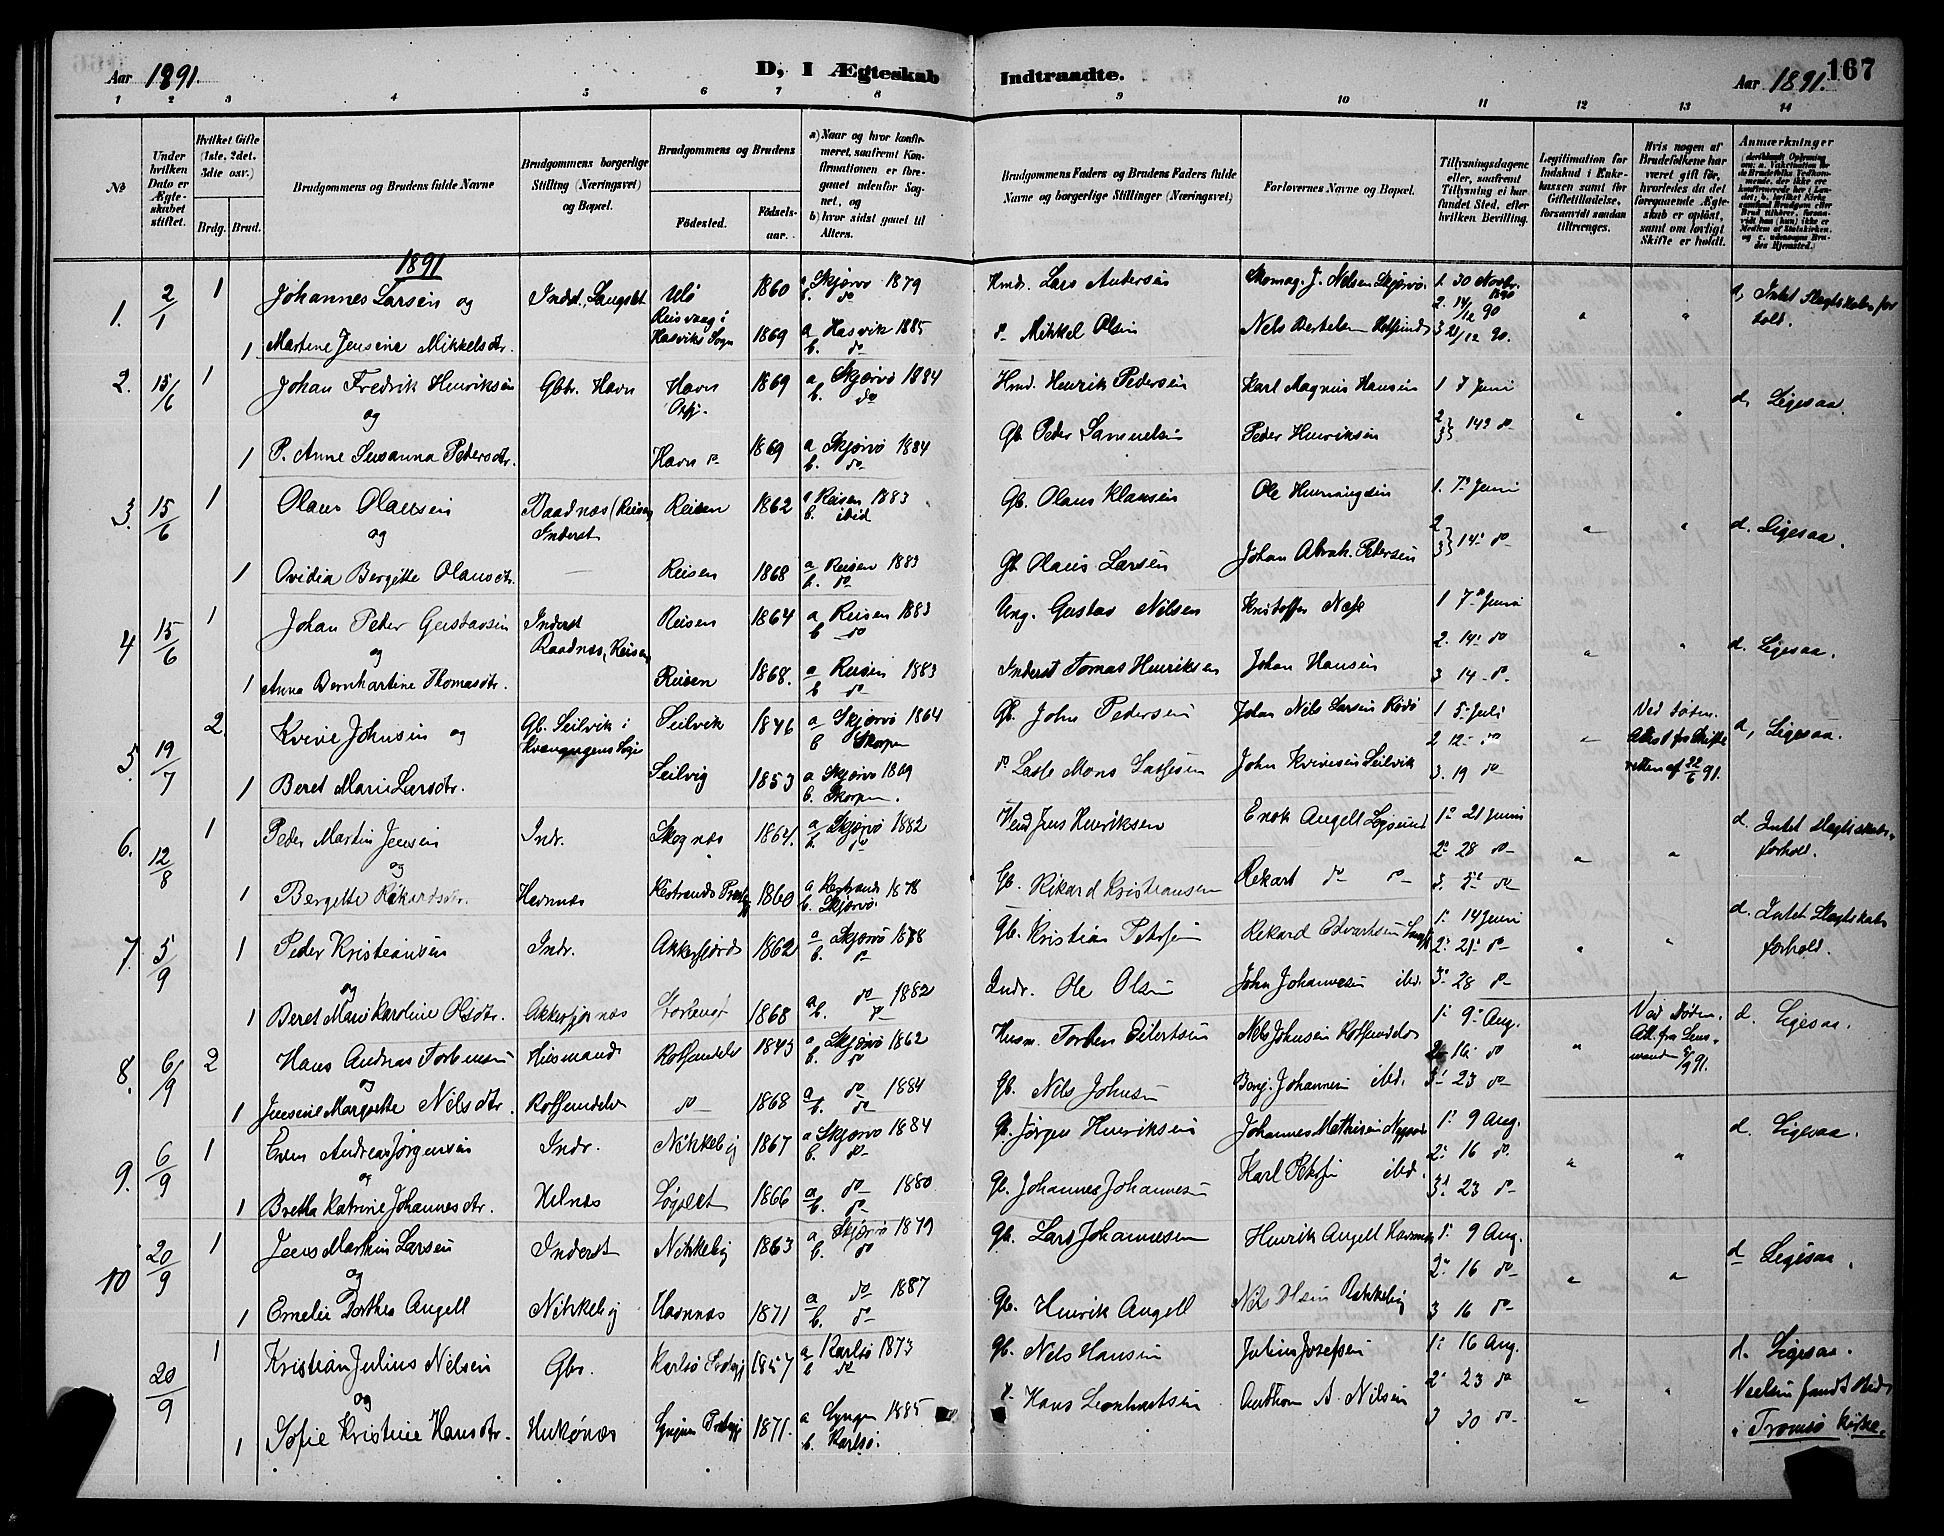 Aar 1891.
D, I Ægteskab
Indtraadte.
Aar 1891.
167
1 2 3 4 5 6 7 8 9 10 11 12 13 14
No
Under hvilken Dato er Ægteskabet stiftet.
Hvilket Gifte (1ste, 2det, 3die osv.)
Brdg. Brud.
Brudgommens og Brudens fulde Navne
Brudgommens borgerlige Stilling (Næringsvei) og Bopæl.
Brudgommens og Brudens
Fødested.
Fødselsaar.
a) Naar og hvor konfirmeret, saafremt Konfirmationen er foregaaet udenfor Sognet, og
b) hvor sidst gaaet til Alters.
Brudgommens Faders og Brudens Faders fulde Navne og borgerlige Stillinger (Næringsvei)
Forlovernes Navne og Bopæl.
Tillysningsdagene eller, saafremt Tillysning ei har fundet Sted, efter hvilken Bevilling.
Legitimation for Indskud i Enkekassen samt for Giftetilladelse, forsaavidt saadan tiltrænges.
Hvis nogen af Brudefolkene har været gift før, hvorledes da det foregaaende Ægteskab er opløst, samt om lovligt Skifte er holdt.
Anmærkninger
1891
1. 2/1 1 Johannes Larsen og Indst, Langslet Ulö 1860 a Skjærvö 1879 b. do Hmd. Lars Andersen Skomag. J. Nelsen Skjærvö 1. 30 Novbr. 1890 2. 14/12 90 " " d, Intet Slagtskabsforhold.
1 Martine Jensine Mikkelsdtr. Reisvaag i Hasviks Sogn 1869 a Hasvik 1885 b. do do Mikkel Olsen Nels Bertelsen Rotsund 3 21/12 90.
2. 15/6 1 Johan Fredrik Henriksen Gbr. Havn Havn 1869 a, Skjærvö 1884 b. do Hmd. Henrik Pedersen Karl Magnus Hansen 1 7 Juni " " d, Ligesaa.
og
1 P. Anne Susanna Pedersdtr. Havn do 1869 a Skjærvö 1884 b. do Gb. Peder Samuelsen Peder Henriksen 2 3} 14de do
3. 15/6 1 Olaus Olausen Raadnæs (Reisen) Inderst Reisen 1862 a Reisen 1883 b. ibid Gb. Olaus Klausen Ole Henningsen 1. 7de Juni " " d. Ligesaa.
og
1 Ovidia Bergitte Olausdtr. Reisen 1868 a Reisen 1883 b. do Gb. Olaus Larsen Johan Abrah. Petersen 2 3} 14de do
4 15/6 1 Johan Peter Gustavsen Inderst Raadnæs, Reisen Reisen 1864 a Reisen 1883 b do Ung. Gustav Nilsen Kristoffer Næss 1 7de Juni 2. 14de do " " d. Ligesaa.
og
1 Anna Bernhartine Thomasdtr. Reisen 1868. a Reisen 1883 b do Inderst Tomas Henriksen Johan Hansen 3 14 do
5. 19/7 2. Kvive Johnsen og Gb. Seilvik i Kvænangens Sogn Seilvik 1846 a Skjærvö 1864 b Skorpen Gb. John Pedersen Johan Nils Larsen Rödö 1 5te Juli 2 12te do " Ved Döden. Attest fra Skifteretten af 22/6 91. a, Ligesaa.
1 Beret Marie Larsdtr. Seilvig 1853 a Skjærvö 1869 b. Skorpen. do Lasse Mons Lassesen John Kvivesen Seilvik 3. 19 do
6. 12/8 1 Peder Martin Jensen Indr. Skognæs 1864. a Skjærvö 1882 b. do Jens Henriksen Enok Angell 1o 21 Juni 2o 28 do " " d. Intet Slagtskabsforhold.
og
1 Bergitte Rikardsdtr. Havnæs Kistrands Prstgj 1860 a Kistrand 1878 b. Skjærvö. Gb. Rikard Kristiansen Rekart do do 3. 5te do
7. 5/9 1 Peder Kristiansen Indr. Akkerfjord 1862 a Skjærvö 1878 b. do Gb. Kristian Petersen Rikard Edvartsen 1. 14 Juni 2. 21. do " " d. Intet Slagtskabsforhold.
og
1 Beret Marie Karoline Olsdtr. Akkerfjornæs 1868 a. do 1882 b. do Indr. Ole Olsen John Johannesen ibd. 3. 28 do
8. 6/9 2 Hans Andreas Torbensen Husmand Rotsundelv 1843 a. Skjærvö 1862 b. do Husm. Torben Eilertsen Nels Johnsen Rotsundelv 1. 9de Aug. 2. 16. do " Ved Döden. Att. fra Lensmanden 5/9 91. d. Ligesaa.
og
1 Jensine Margrethe Nilsdtr. Rotsundelv do 1868 a do 1884 b. do Gb. Nils Johnsen Benj. Johannesen ibd. 3. 23 do
9. 6/9 1 Even Andreas Jörgensen Indr. Nikkeby 1867 a Skjærvö 1884 b. do Gb. Jörgen Henriksen Johannes Mathisen 1. 9 Aug. 2. 16 do " " d. Ligesaa.
og
1 Bretha Katrine Johannesdtr. Helnæs Lögslet 1866 a do 1880 b. do Gb. Johannes Johannesen Karl Petersen ibd. 3. 23 do
10 20/9 1 Jens Martin Larsen Inderst Nikkeby 1863 a Skjærvö 1879 b. do Gb. Lars Johannesen Henrik Angell Havnnæs 1. 9 Aug. 2. 16 do " " d Ligesaa.
og
1 Emelie Dorthea Angell Nikkeby Havnnæs 1871 a do 1887 b. do Gb. Henrik Angell Nils Olsen Nikkeby 3 16 do
20/9 1 Kristian Julius Nelsen Gbr. Karlsö Prstgj 1857 a Karlsö 1873 b do Gb. Nels Hansen Julius Josefsen 1. 16 Aug. 2. 23 do " " d. Ligesaa.
og
1 Sofie Kristine Hansdtr. Hukönæs Lyngen Prstgj 1871. a Lyngen 1885 b. Karlsö. do Hans Leonhartsen Anthon A. Nilsen 3 30 do Vielsen fandt Sted i Tromsö Kirke.